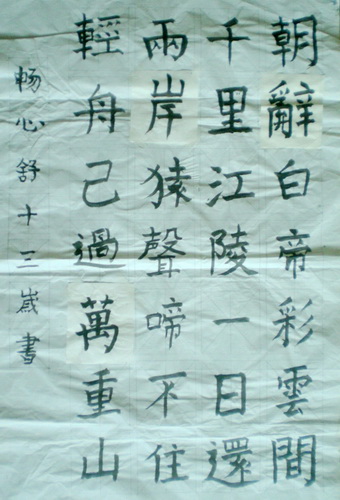 朝辭白帝彩雲間
千里江陵一日還
兩岸猿聲啼不住
輕舟己過萬重山
畅心舒十三歲書